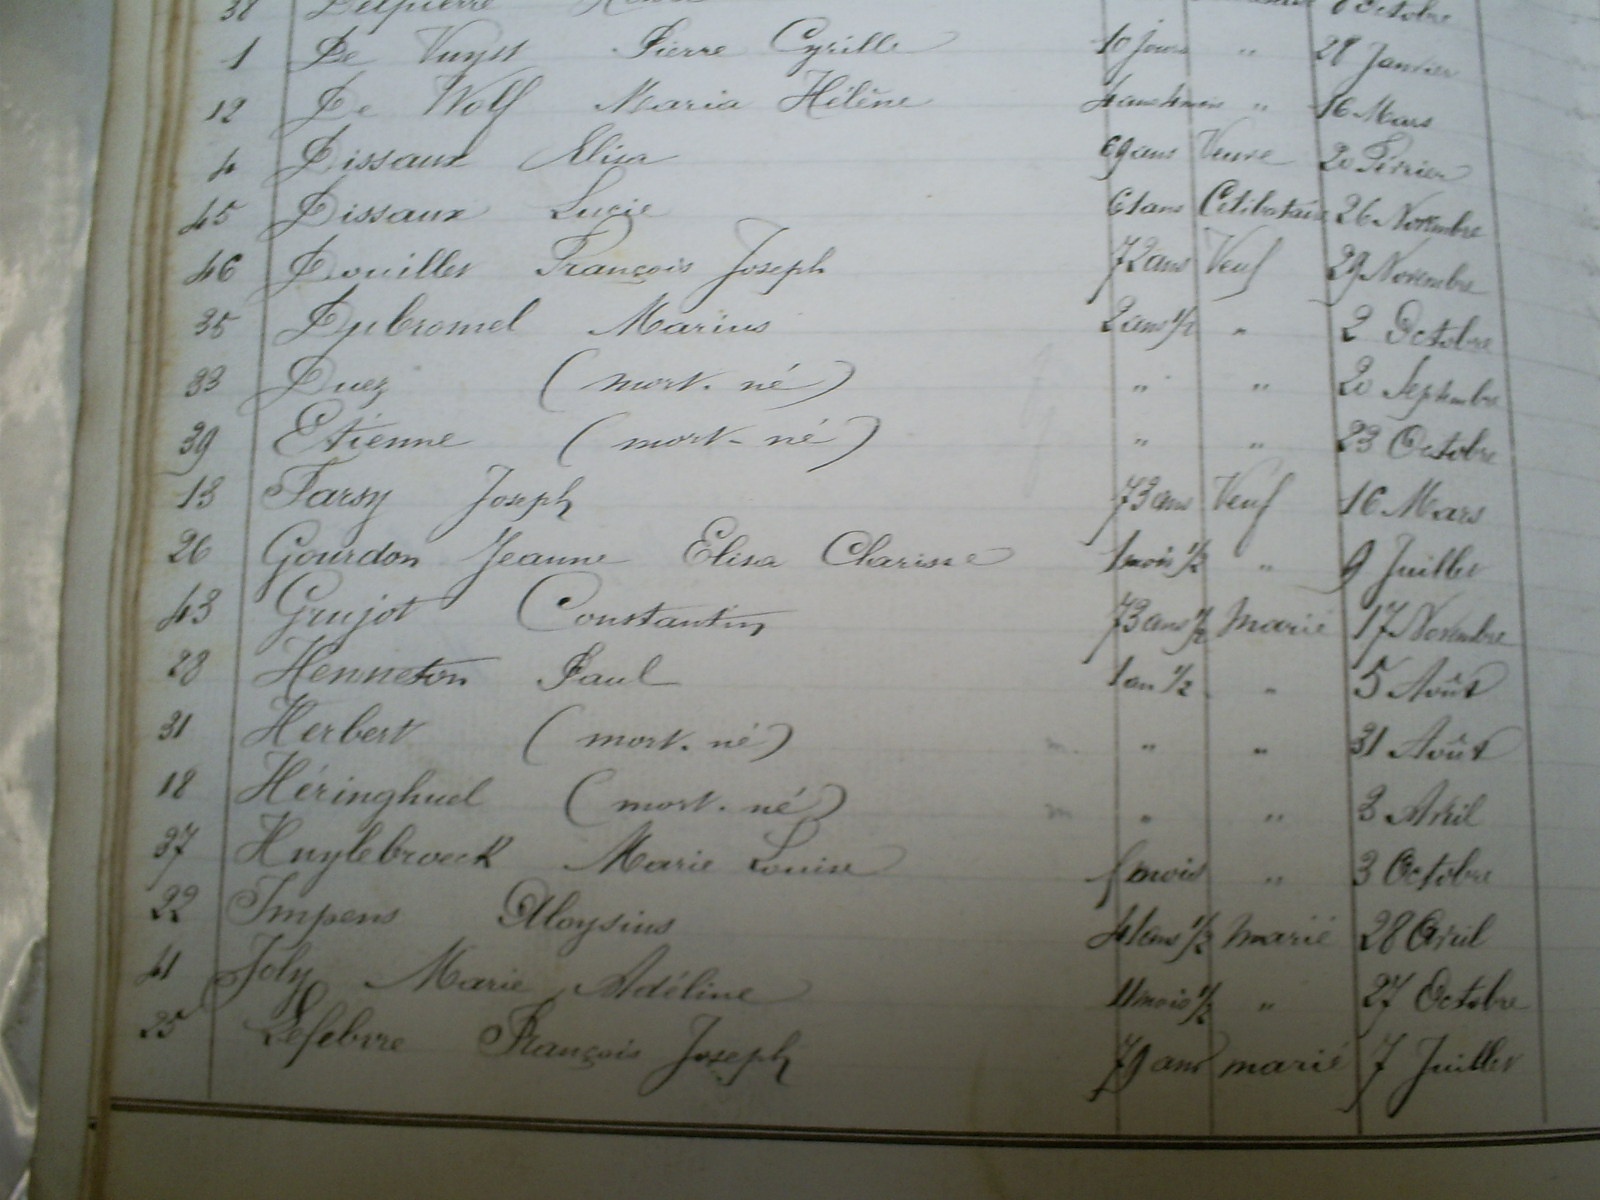 38 Delpierre 8 Octobre
1 De Vuyst Pierre Cyrille 10 jours " 28 Janvier
12 De Wolf Maria Hélène 4 ans 4 mois " 16 Mars
4 Dissaux Elisa 69 ans Veuve 20 Février
45 Dissaux Lucie 61 ans Célibataire 26 Novembre
46 Douillet François Joseph 72 ans Veuf 29 Novembre
35 Dubromel Marius 2 ans 1/2 " 2 Octobre
33 Duez (mort-né) " " 20 Septembre
39 Etienne (mort-né) " " 23 Octobre
13 Farsy Joseph 73 ans Veuf 16 Mars
26 Gourdon Jeanne Elisa Charisse 1 mois 1/2 " 9 Juillet
43 Grujot Constantin 73 ans 1/2 marié 17 Novembre
28 Henneton Paul 1 an 1/2 " 5 Août
31 Herbert (mort-né) " " 31 Août
18 Héringhuel (mort-né) " " 3 Avril
37 Huylebroeck Marie Louise mois " 3 Octobre
22 Impens Aloysius 41 ans 1/2 marié 28 Avril
41 Joly Marie Adéline 11 mois 1/2 " 27 Octobre
25 Lefebvre François Joseph 79 ans marié 7 Juillet